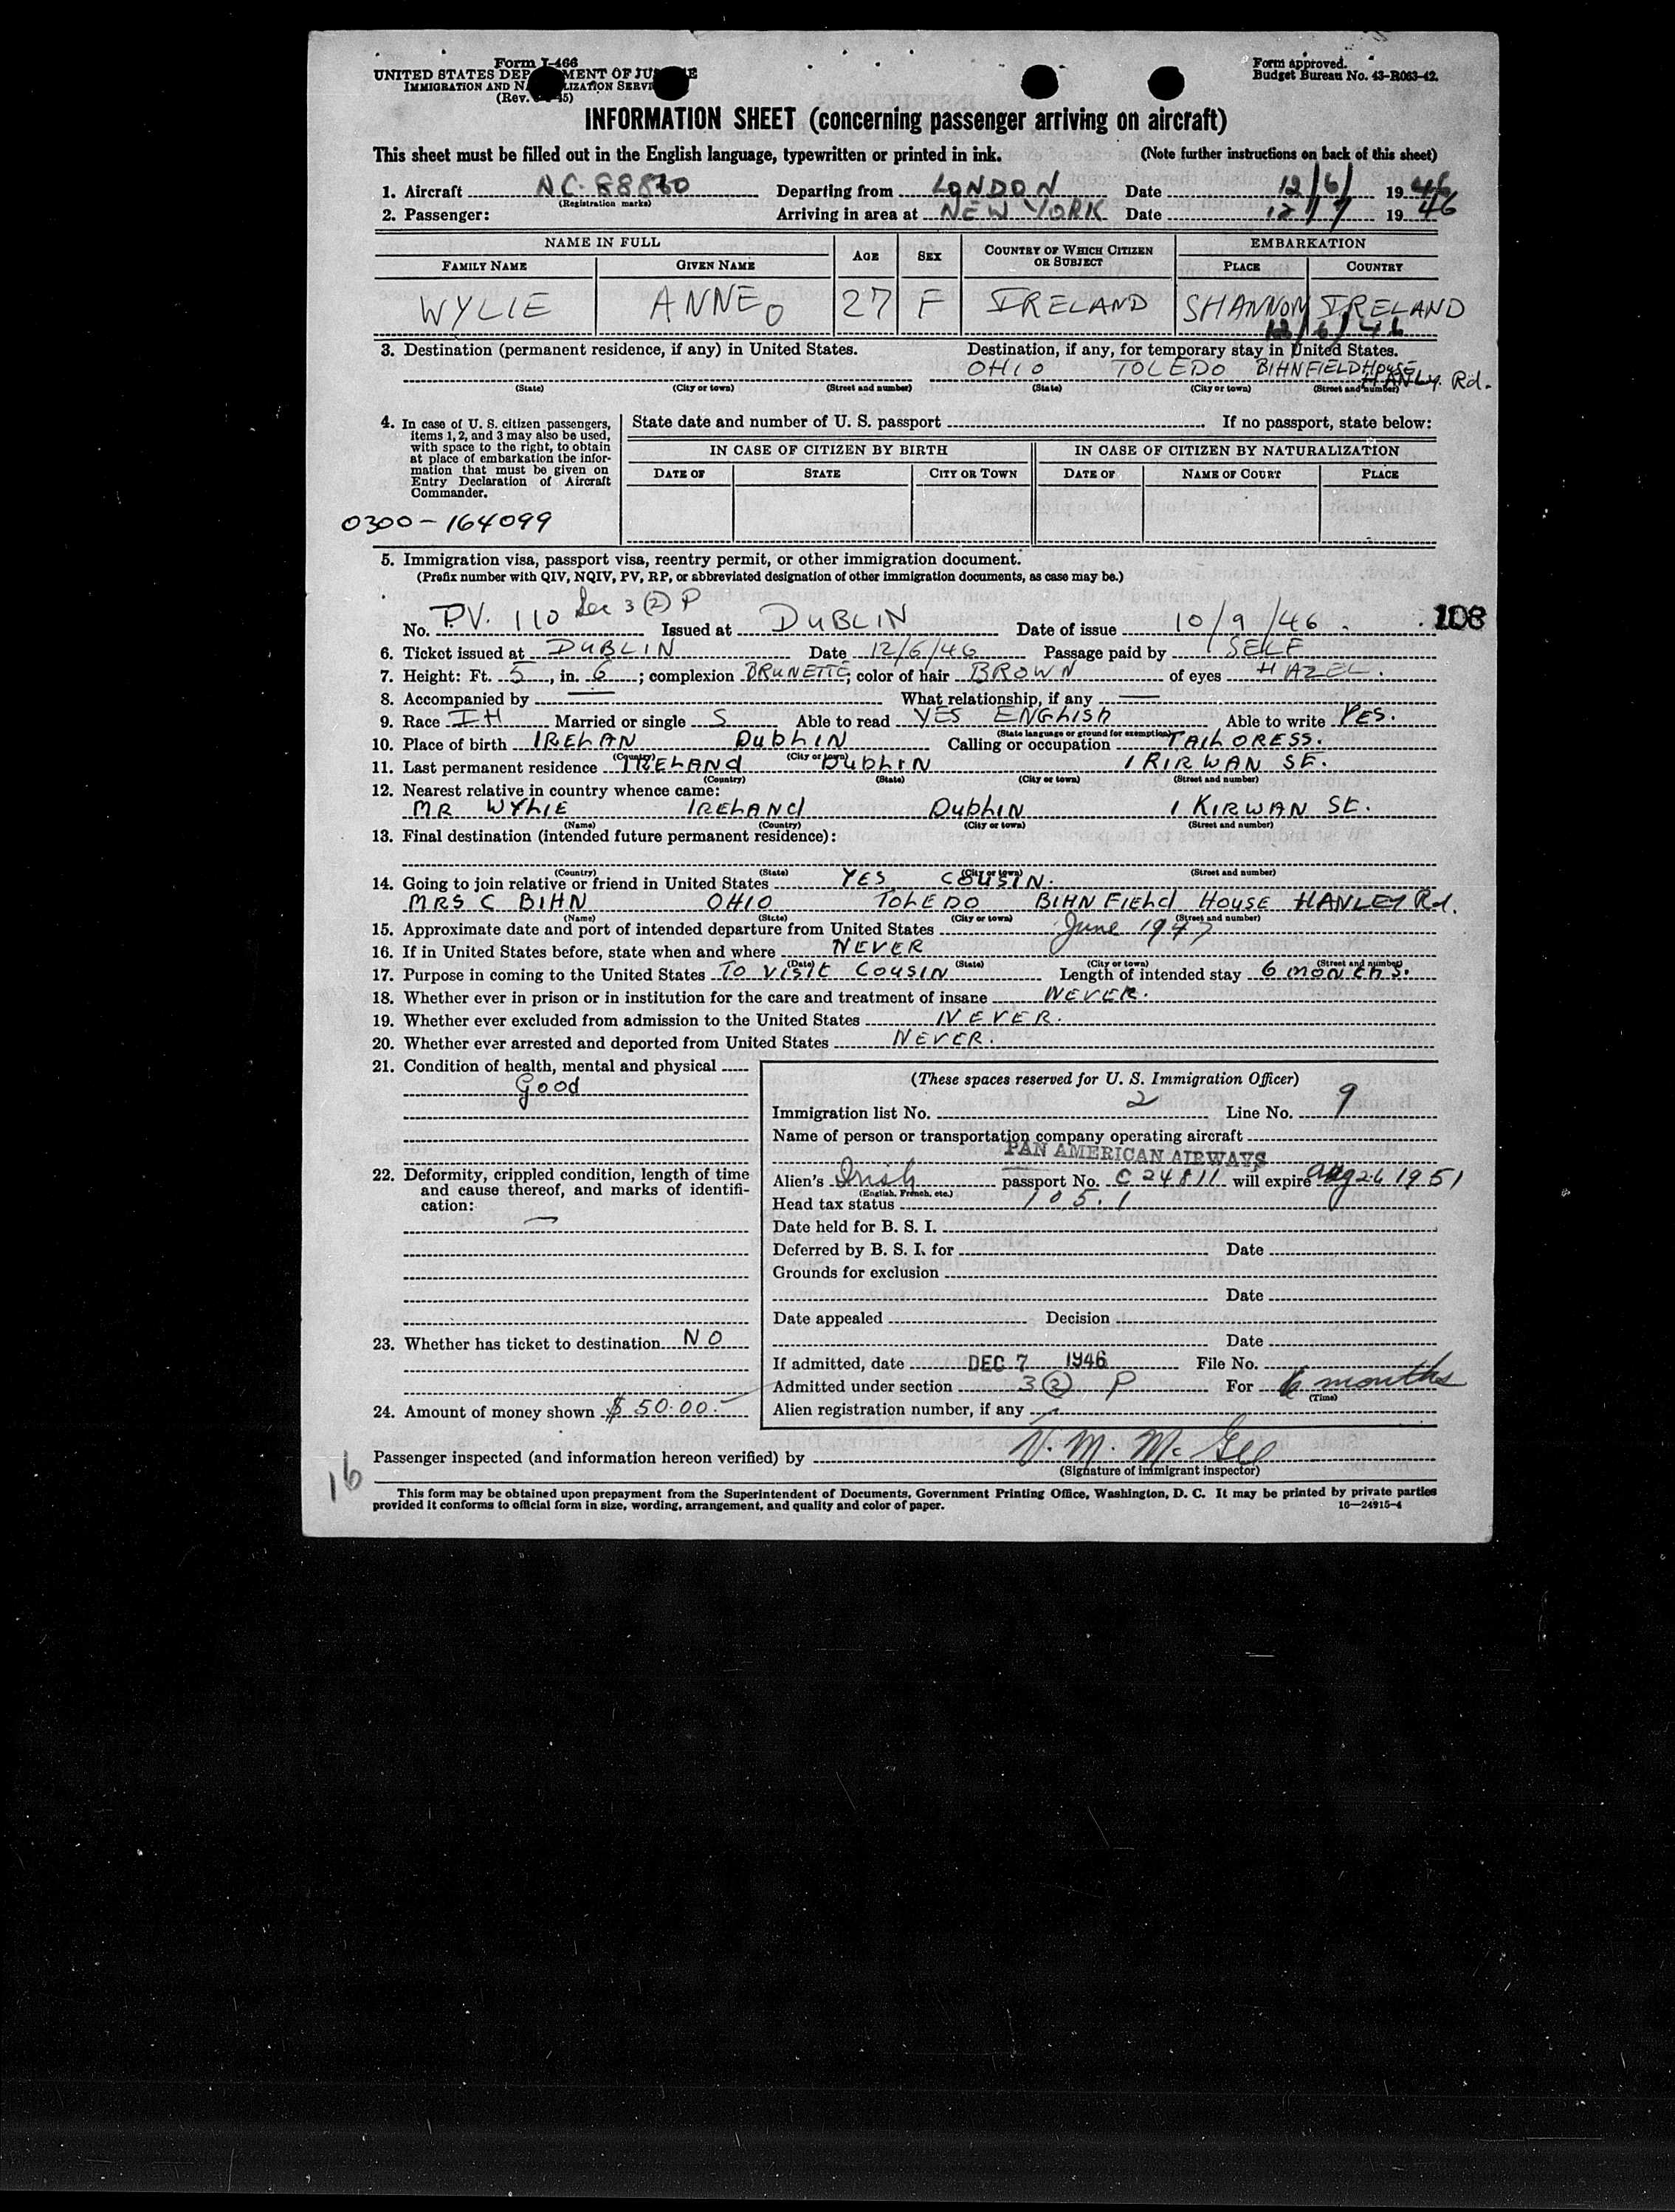 Form I-466
UNITED STATES DEPARTMENT OF JUSTICE
IMMIGRATION AND NATURALIZATION SERVICE
(Rev. 45)
Form approved.
Budget Bureau No. 43-R063-42.
INFORMATION SHEET (concerning passenger arriving on aircraft)
This sheet must be filled out in the English language, typewritten or printed in ink. (Note further instructions on back of this sheet)
1. Aircraft NC 88860 Departing from LONDON Date 12/6/ 1946
(Registration marks)
2. Passenger: Arriving in area at NEW YORK Date 12/7 1946
NAME IN FULL AGE SEX COUNTRY OF WHICH CITIZEN OR SUBJECT EMBARKATION
FAMILY NAME GIVEN NAME PLACE COUNTRY
WYLIE ANNE 27 F IRELAND SHANNON IRELAND
12/6/46
3. Destination (permanent residence, if any) in United States. Destination, if any, for temporary stay in United States.
OHIO TOLEDO BIHNFIELD House HANLY. Rd.
(State) (City or town) (Street and number) (State) (City or town) (Street and number)
4. In case of U. S. citizen passengers, items 1, 2, and 3 may also be used, with space to the right, to obtain at place of embarkation the information that must be given on Entry Declaration of Aircraft Commander.
State date and number of U. S. passport If no passport, state below:
IN CASE OF CITIZEN BY BIRTH IN CASE OF CITIZEN BY NATURALIZATION
DATE OF STATE CITY OR TOWN DATE OF NAME OF COURT PLACE
0300-164099
5. Immigration visa, passport visa, reentry permit, or other immigration document.
(Prefix number with QIV, NQIV, PV, RP, or abbreviated designation of other immigration documents, as case may be.)
No. P.V. 110 Sec 3(2) P Issued at DUBLIN Date of issue 10/9/46. 108
6. Ticket issued at DUBLIN Date 12/6/46 Passage paid by SELF
7. Height: Ft. 5, in. 6; complexion BRUNETTE; color of hair BROWN of eyes HAZEL.
8. Accompanied by — What relationship, if any —
9. Race IH Married or single S Able to read YES ENGLISH Able to write YES.
(State language or ground for exemption)
10. Place of birth IRELAN DUBLIN Calling or occupation TAILORESS.
(Country) (City or town)
11. Last permanent residence IRELAND DUBLIN 1 RIRWAN SE.
(Country) (State) (City or town) (Street and number)
12. Nearest relative in country whence came:
MR WYLIE IRELAND DUBLIN 1 KIRWAN St.
(Name) (Country) (City or town) (Street and number)
13. Final destination (intended future permanent residence):
(Country) (State) (City or town) (Street and number)
14. Going to join relative or friend in United States YES COUSIN.
MRS C BIHN OHIO TOLEDO BIHN FIELD HOUSE HANLEY Rd.
(Name) (State) (City or town) (Street and number)
15. Approximate date and port of intended departure from United States June 1947
16. If in United States before, state when and where NEVER
(Date) (State) (City or town) (Street and number)
17. Purpose in coming to the United States TO VISIT COUSIN Length of intended stay 6 months.
18. Whether ever in prison or in institution for the care and treatment of insane NEVER.
19. Whether ever excluded from admission to the United States NEVER.
20. Whether ever arrested and deported from United States NEVER.
21. Condition of health, mental and physical
Good
22. Deformity, crippled condition, length of time and cause thereof, and marks of identification:
—
23. Whether has ticket to destination NO
24. Amount of money shown $50.00.-
(These spaces reserved for U. S. Immigration Officer)
Immigration list No. 2 Line No. 9
Name of person or transportation company operating aircraft
PAN AMERICAN AIRWAYS
Alien's Irish passport No. C 24811 will expire Aug 26 1951
(English, French, etc.)
Head tax status 105.1
Date held for B. S. I.
Deferred by B. S. I. for Date
Grounds for exclusion
Date
Date appealed Decision
Date
If admitted, date DEC 7 1946 File No.
Admitted under section 3(2) P For 6 months
(Time)
Alien registration number, if any
Passenger inspected (and information hereon verified) by V. M. McGee
(Signature of immigrant inspector)
16
This form may be obtained upon prepayment from the Superintendent of Documents, Government Printing Office, Washington, D. C. It may be printed by private parties
provided it conforms to official form in size, wording, arrangement, and quality and color of paper. 16—24915-4